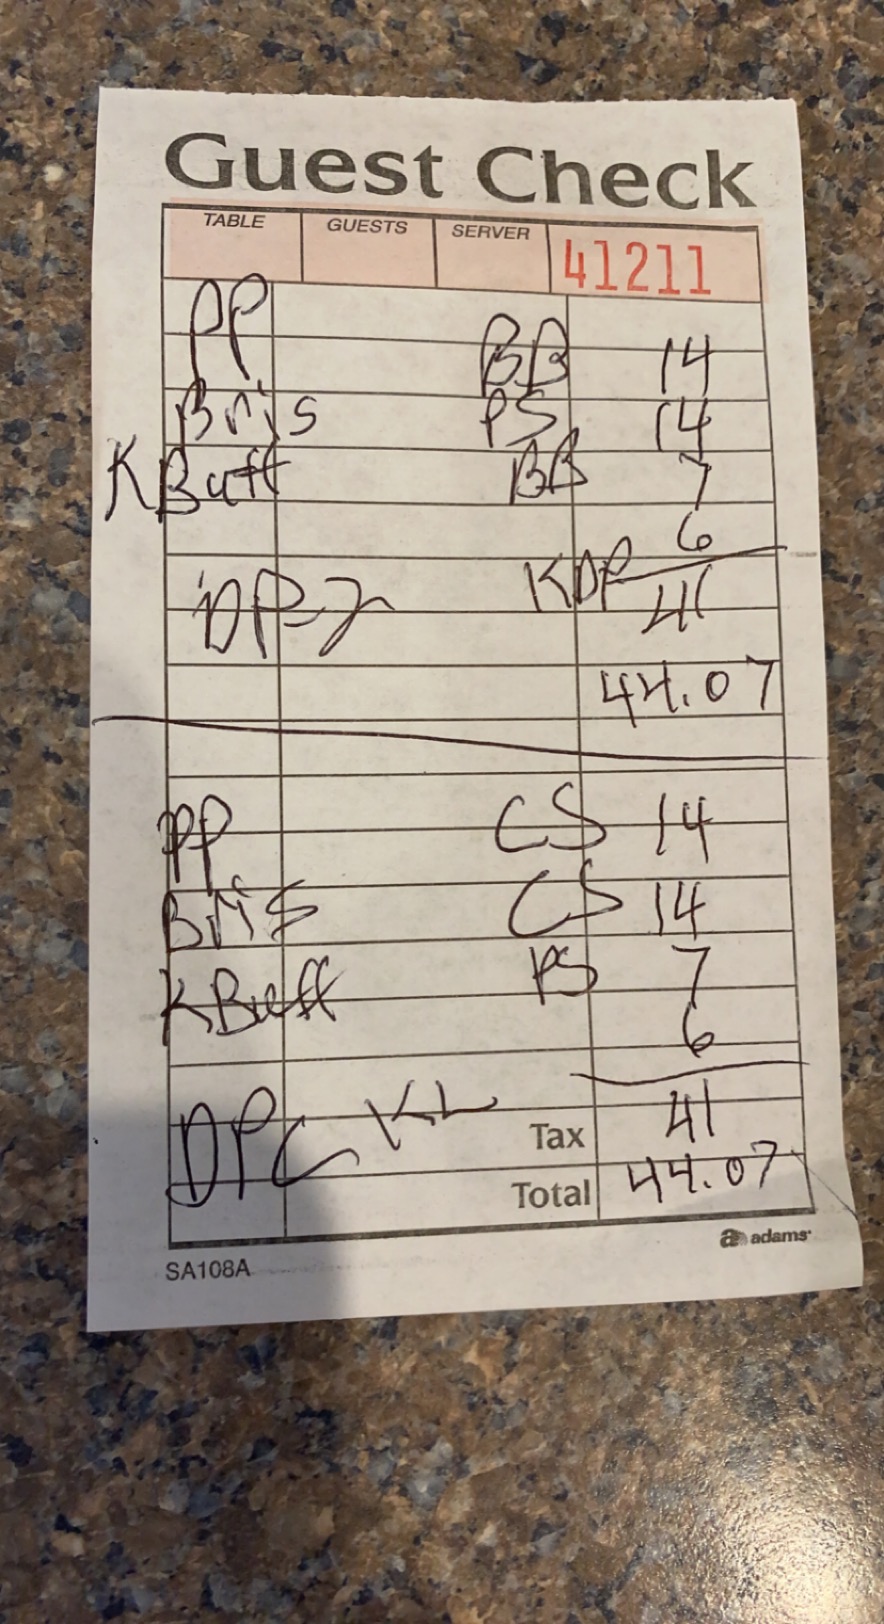 Guest Check
TABLE GUESTS SERVER 41211
PP BB 14
Bris PS 14
KBuff BB 7
6
DP-2 KDP 41
44.07
PP CS 14
Bris CS 14
KBuff PS 7
6
DPC KL
Tax 41
Total 44.07
adams
SA108A